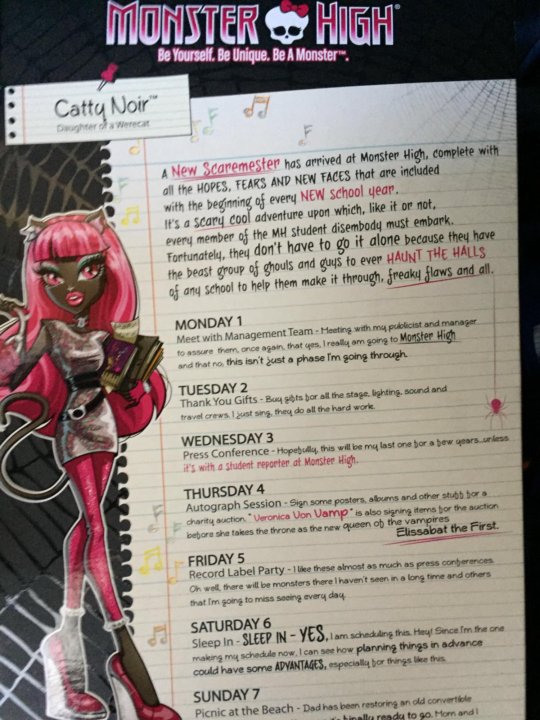 MONSTER HIGH
Be Yourself. Be Unique. Be A Monster™.
Catty Noir™
Daughter of a Werecat
A New Scaremester has arrived at Monster High, complete with
all the HOPES, FEARS AND NEW FACES that are included
with the beginning of every NEW school year.
It's a scary cool adventure upon which, like it or not,
every member of the MH student disembody must embark.
Fortunately, they don't have to go it alone because they have
the beast group of ghouls and guys to ever HAUNT THE HALLS
of any school to help them make it through, freaky flaws and all.
MONDAY 1
Meet with Management Team - Meeting with my publicist and manager
to assure them, once again, that yes, I really am going to Monster High
and that no, this isn't just a phase I'm going through.
TUESDAY 2
Thank You Gifts - Buy gifts for all the stage, lighting, sound and
travel crews. I just sing, they do all the hard work.
WEDNESDAY 3
Press Conference - Hopefully, this will be my last one for a few years...unless
it's with a student reporter at Monster High.
THURSDAY 4
Autograph Session - Sign some posters, albums and other stuff for a
charity auction. "Veronica Von Vamp" is also signing items for the auction
before she takes the throne as the new queen of the vampires
Elissabat the First.
FRIDAY 5
Record Label Party - I like these almost as much as press conferences.
Oh well, there will be monsters there I haven't seen in a long time and others
that I'm going to miss seeing every day.
SATURDAY 6
Sleep In - SLEEP IN - YES, I am scheduling this. Hey! Since I'm the one
making my schedule now, I can see how planning things in advance
could have some ADVANTAGES, especially for things like this.
SUNDAY 7
Picnic at the Beach - Dad has been restoring an old convertible
finally ready to go. Mom and I